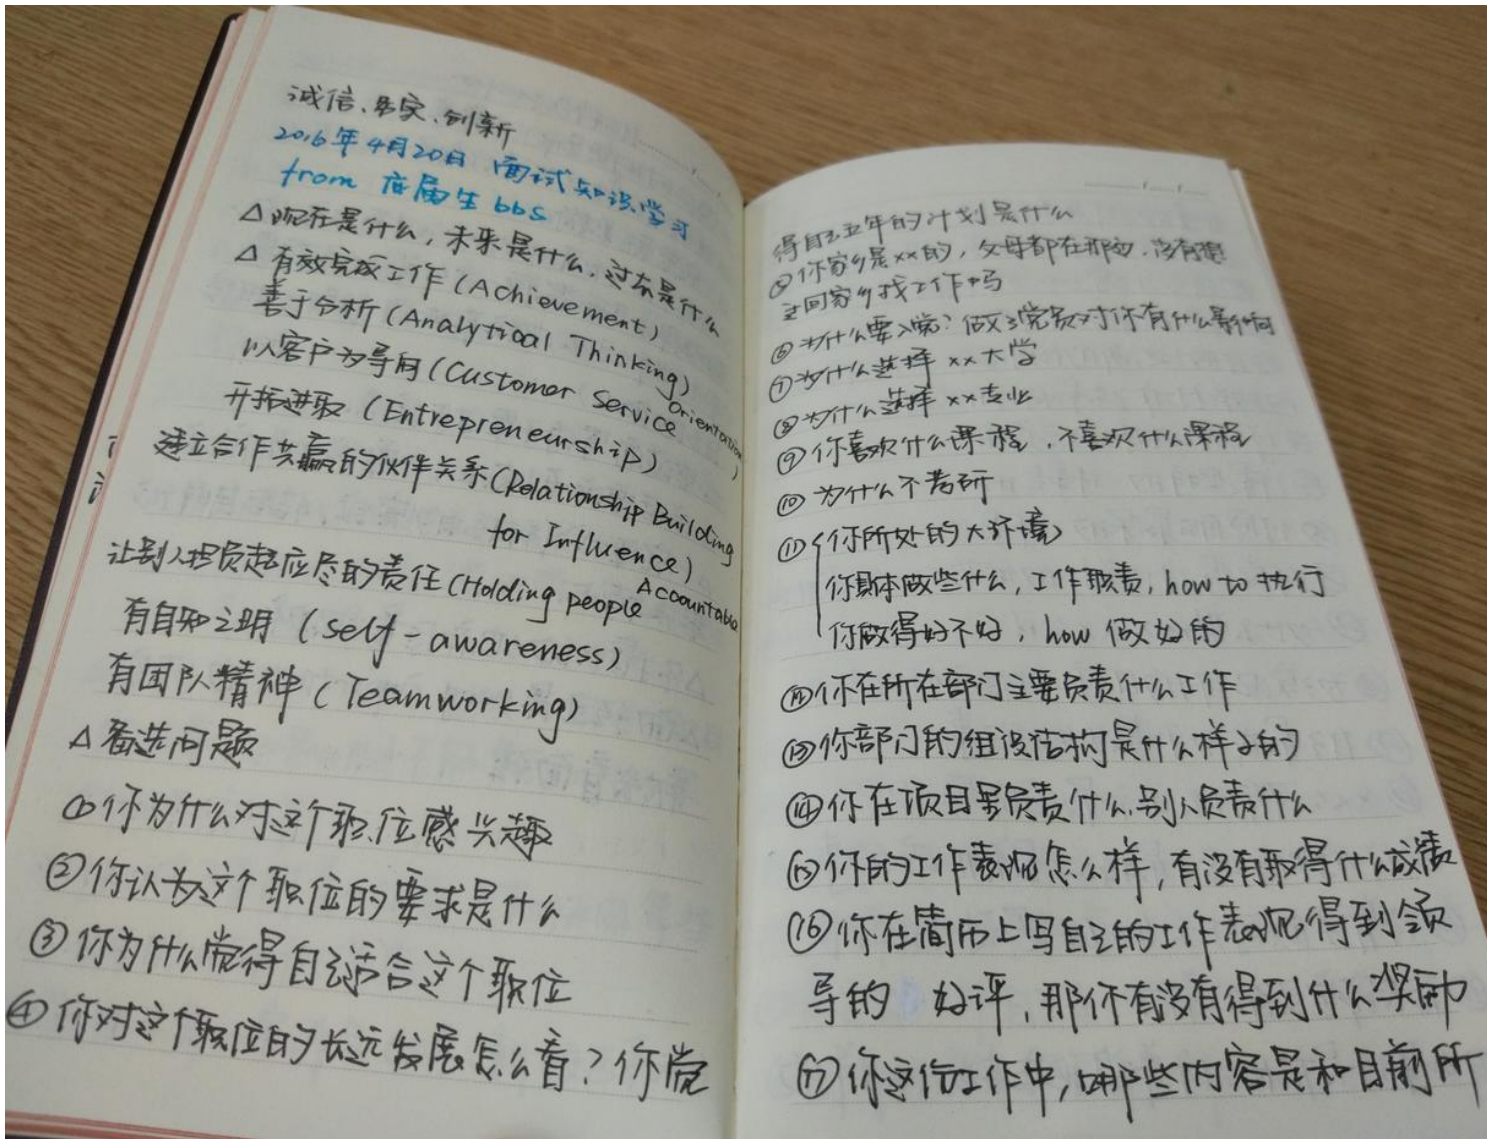 诚信、务实、创新
2016年4月20日 面试知识学习
from 应届生bbs
△现在是什么,未来是什么,过去是什么
△有效完成工作(Achievement)
善于分析(Analytical Thinking)
以客户为导向(Customer Service Orientation)
开拓进取(Entrepreneurship)
建立合作共赢的伙伴关系(Relationship Building
for Influence)
让别人担负起应尽的责任(Holding people Accountable
有自知之明(self-awareness)
有团队精神(Teamworking)
△备选问题
①你为什么对这个职位感兴趣
②你认为这个职位的要求是什么
③你为什么觉得自己适合这个职位
④你对这个职位的长远发展怎么看?你觉
得自己五年的计划是什么
⑤你家乡是xx的,父母都在那边,没有想
过回家乡找工作吗
⑥为什么要入党?做了党员对你有什么影响
⑦为什么选择xx大学
⑧为什么选择xx专业
⑨你喜欢什么课程,不喜欢什么课程
⑩为什么不考研
⑪你所处的大环境
你具体做些什么,工作职责,how to 执行
你做得好不好,how 做好的
⑫你在所在部门主要负责什么工作
⑬你部门的组织结构是什么样子的
⑭你在项目里负责什么,别人负责什么
⑮你的工作表现怎么样,有没有取得什么成绩
⑯你在简历上写自己的工作表现得到领
导的 好评,那你有没有得到什么奖励
⑰你这份工作中,哪些内容是和目前所